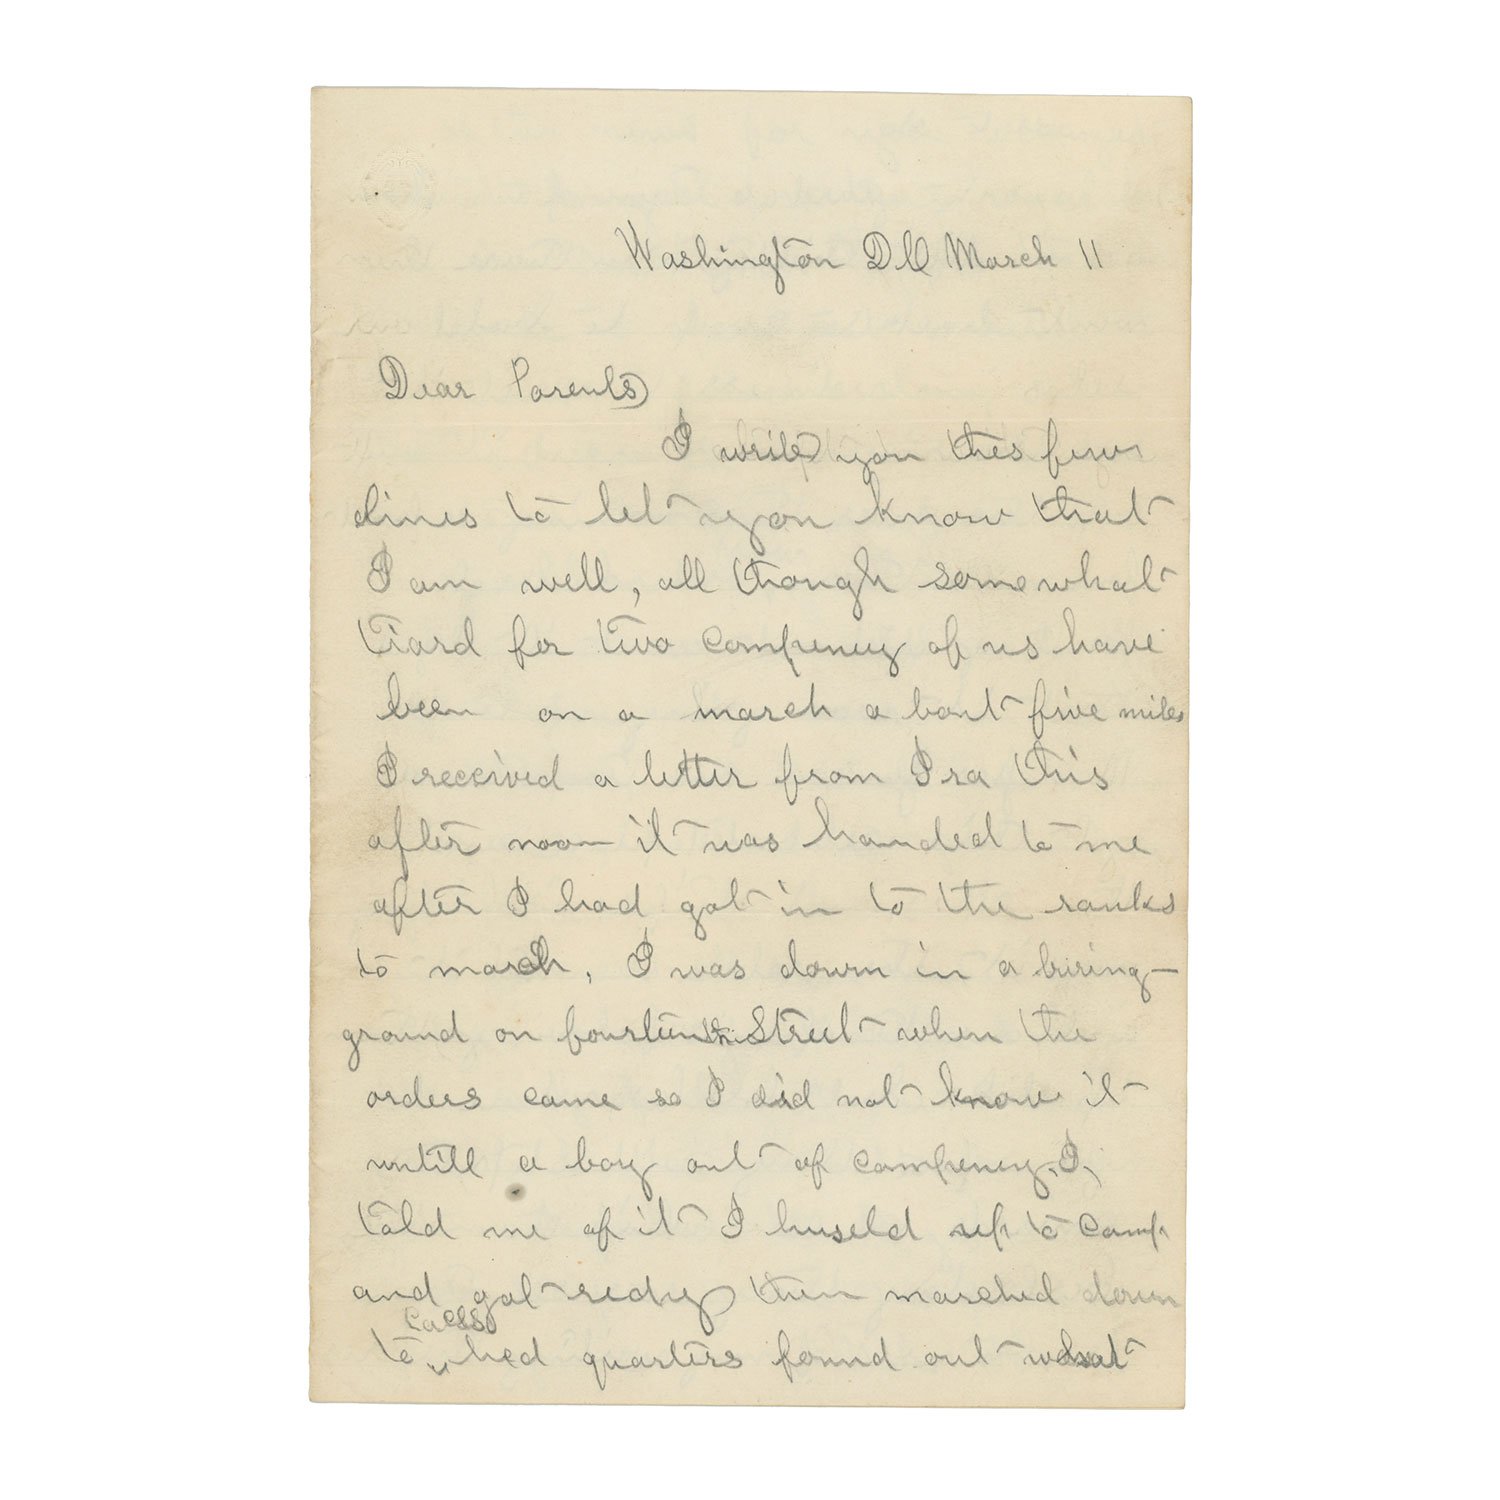 Washington DC March 11
Dear Parents
I write you thes few
lines to let you know that
I am well, all though somewhat
tiard for two compeney of us have
been on a march a bout five miles
I received a letter from Ira this
after noon it was handed to me
after I had got in to the ranks
to march, I was down in a buring-
ground on fourteenth Street when the
orders came so I did not know it
untill a boy out of compeney, I,
told me of it I huseld up to camp
and got redy then marched down
to hed quarters found out what